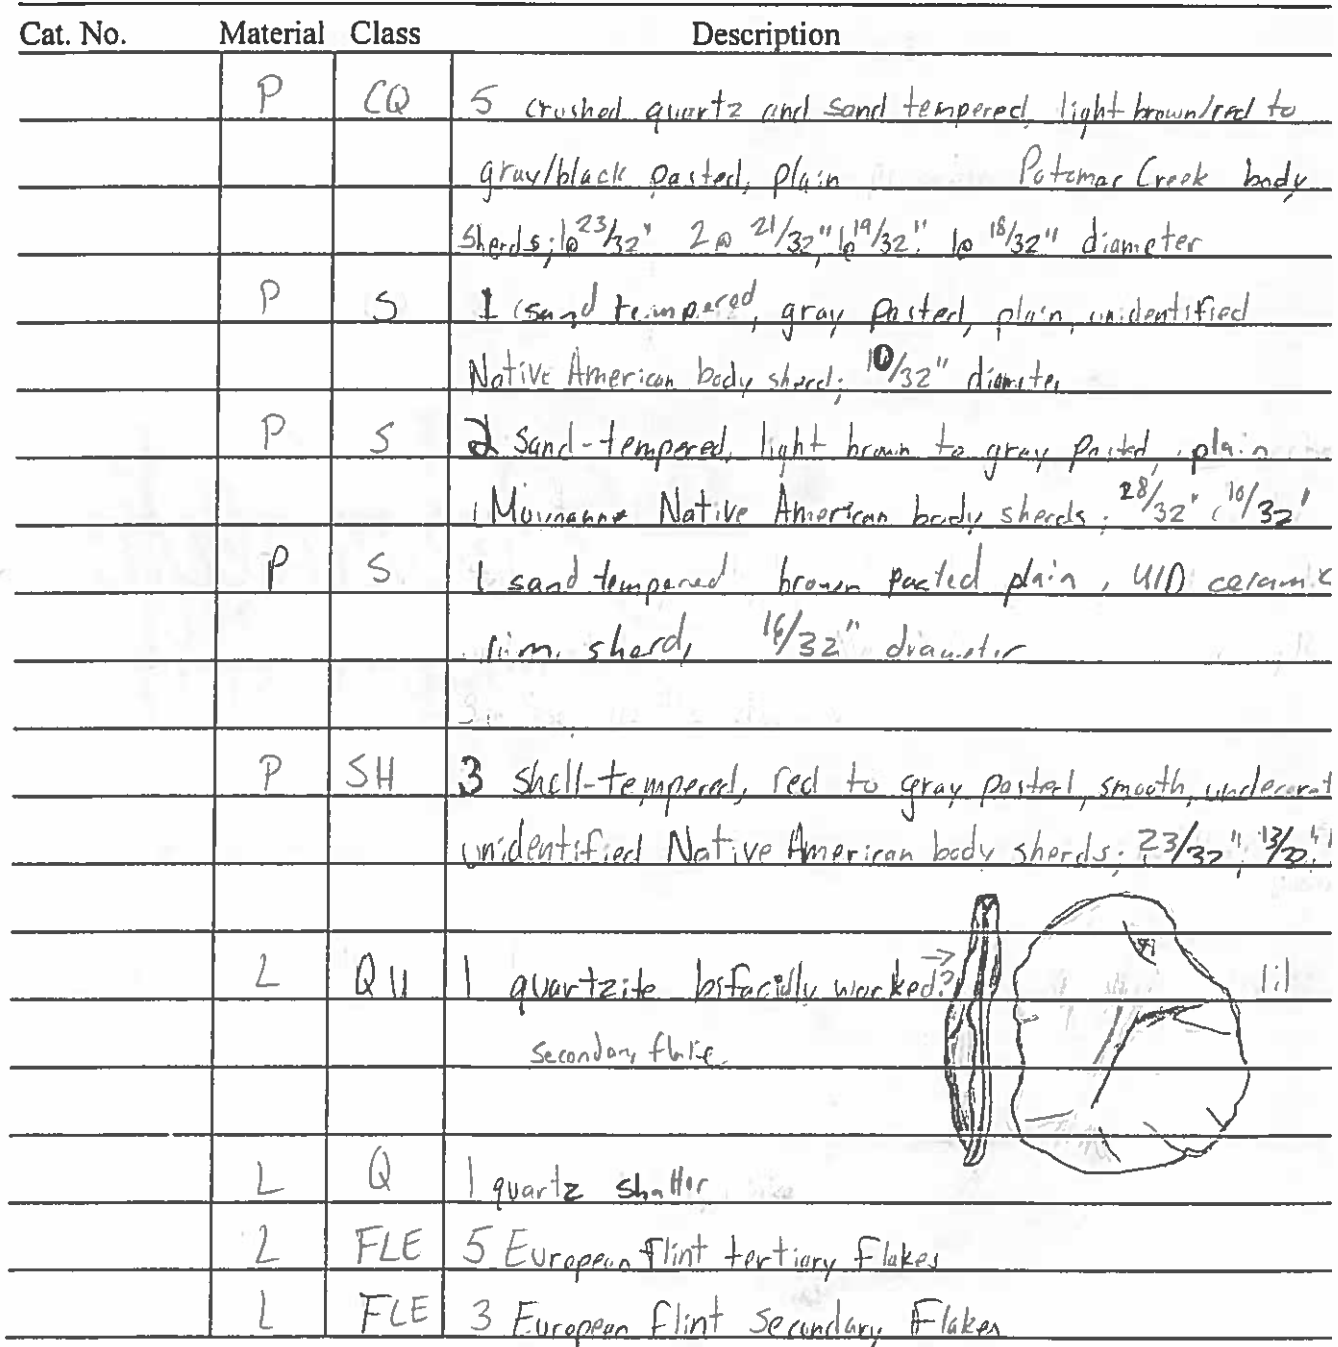 Cat. No. Material Class Description
P CQ 5 crushed quartz and sand tempered, light brown/red to
gray/black pasted, plain Potomac Creek body
Sherds; 1@ 23/32" 2@ 21/32", 1@ 19/32", 1@ 18/32" diameter
P S 1 sand tempered, gray pasted, plain, unidentified
Native American body sherd; 10/32" diameter
P S 2 Sand-tempered, light brown to gray pasted, plain
Native American body sherds; 28/32" 10/32"
P S 1 sand tempered brown pasted plain, UID ceramic
rim sherd, 16/32" diameter
P SH 3 Shell-tempered, red to gray pasted, smooth, undecorat
unidentified Native American body sherds; 23/32", 13/32",
L Q 1 quartzite bifacially worked?
secondary flake
L Q 1 quartz shatter
L FLE 5 European flint tertiary flakes
L FLE 3 European flint secondary flakes